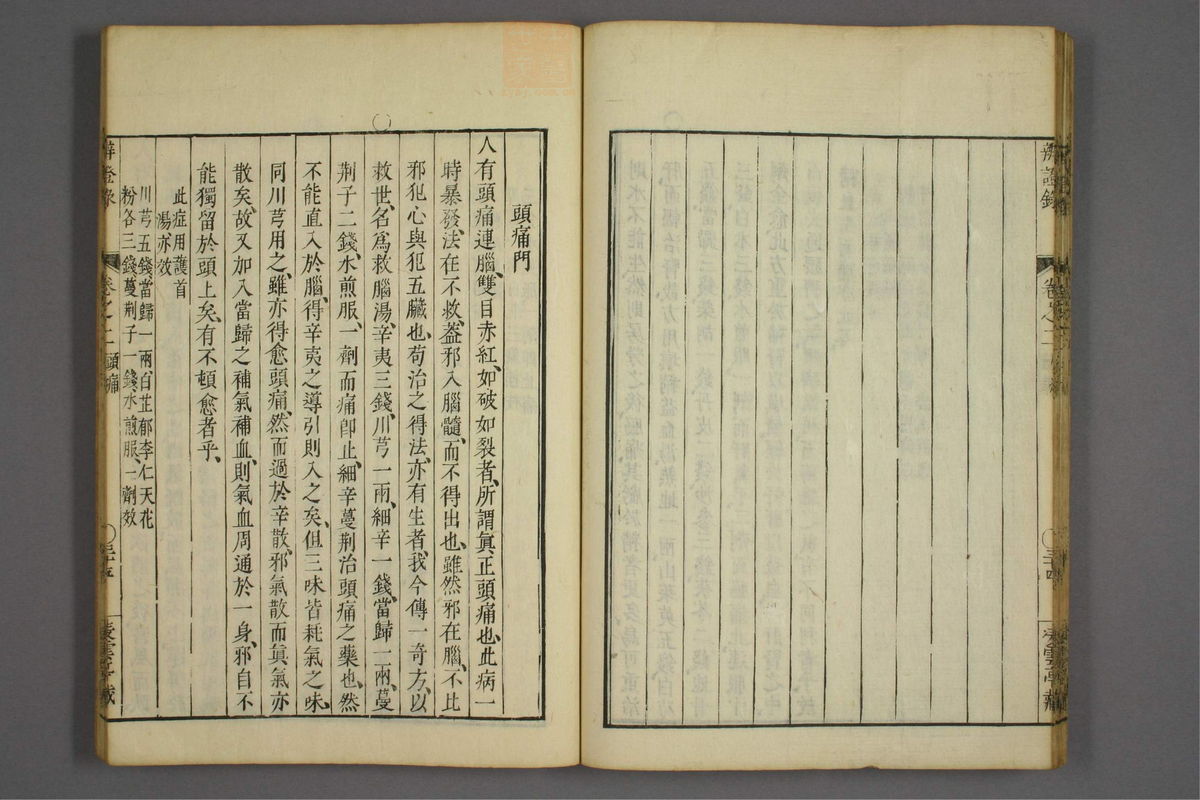 頭痛門
人有頭痛連腦、雙目赤紅、如破如裂者、所謂眞正頭痛也、此病一
時暴發、法在不救、葢邪入腦髓、而不得出也、雖然邪在腦、不比
邪犯心與犯五臟也、苟治之得法、亦有生者、我今傳一奇方、以
救世、名爲救腦湯、辛夷三錢、川芎一兩、細辛一錢、當歸一兩、蔓
荆子二錢、水煎服、一劑而痛卽止、細辛蔓荆治頭痛之藥也、然
不能直入於腦、得辛夷之導引則入之矣、但三味皆耗氣之味、
同川芎用之、雖亦得愈頭痛、然而過於辛散、邪氣散而眞氣亦
散矣、故又加入當歸之補氣補血、則氣血周通於一身、邪自不
能獨留於頭上矣、有不頓愈者乎、
此症用護首
湯亦效
川芎五錢當歸一兩白芷郁李仁天花
粉各三錢蔓荆子一錢水煎服、一劑效
辨證錄 卷之二 頭痛 三十五
辨證錄 卷之二 三十四